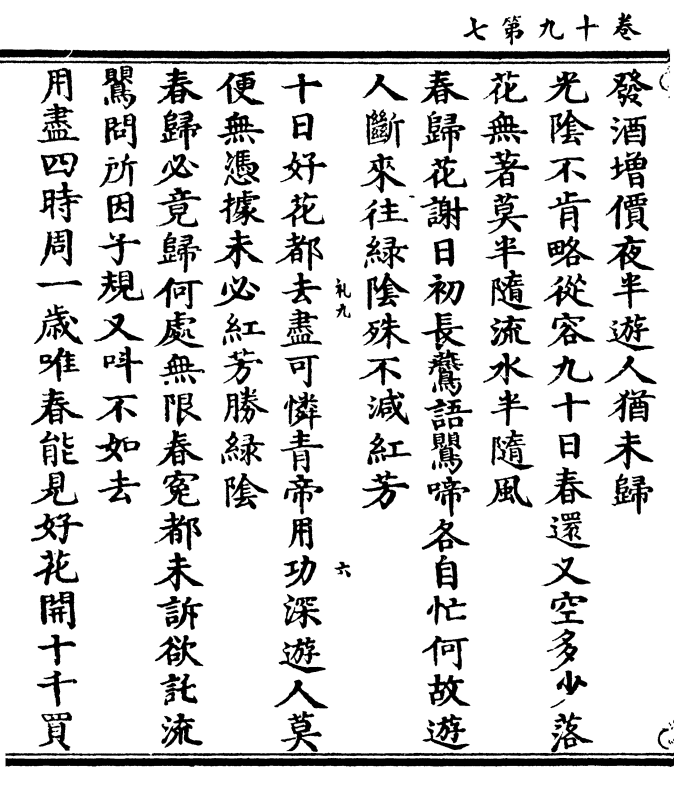 卷十九第七
發酒增價夜半遊人猶未歸
光陰不肯略從容九十日春還又空多少落
花無著莫半隨流水半隨風
春歸花謝日初長鷰語鸎啼各自忙何故遊
人斷來往緑陰殊不減紅芳
礼九 六
十日好花都去盡可憐青帝用功深遊人莫
便無憑據未必紅芳勝緑陰
春歸必竟歸何處無限春寃都未訴欲託流
鸎問所因子規又呌不如去
用盡四時周一歲唯春能見好花開十千買